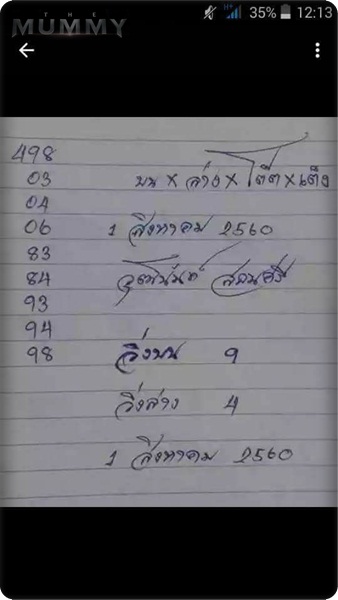 THE
MUMMY
35% 12:13
498
03
04
06
83
84
93
94
98
บน x ล่าง x โต๊ด x เต็ง
1 สิงหาคม 2560
วิ่งบน 9
วิ่งล่าง 4
1 สิงหาคม 2560